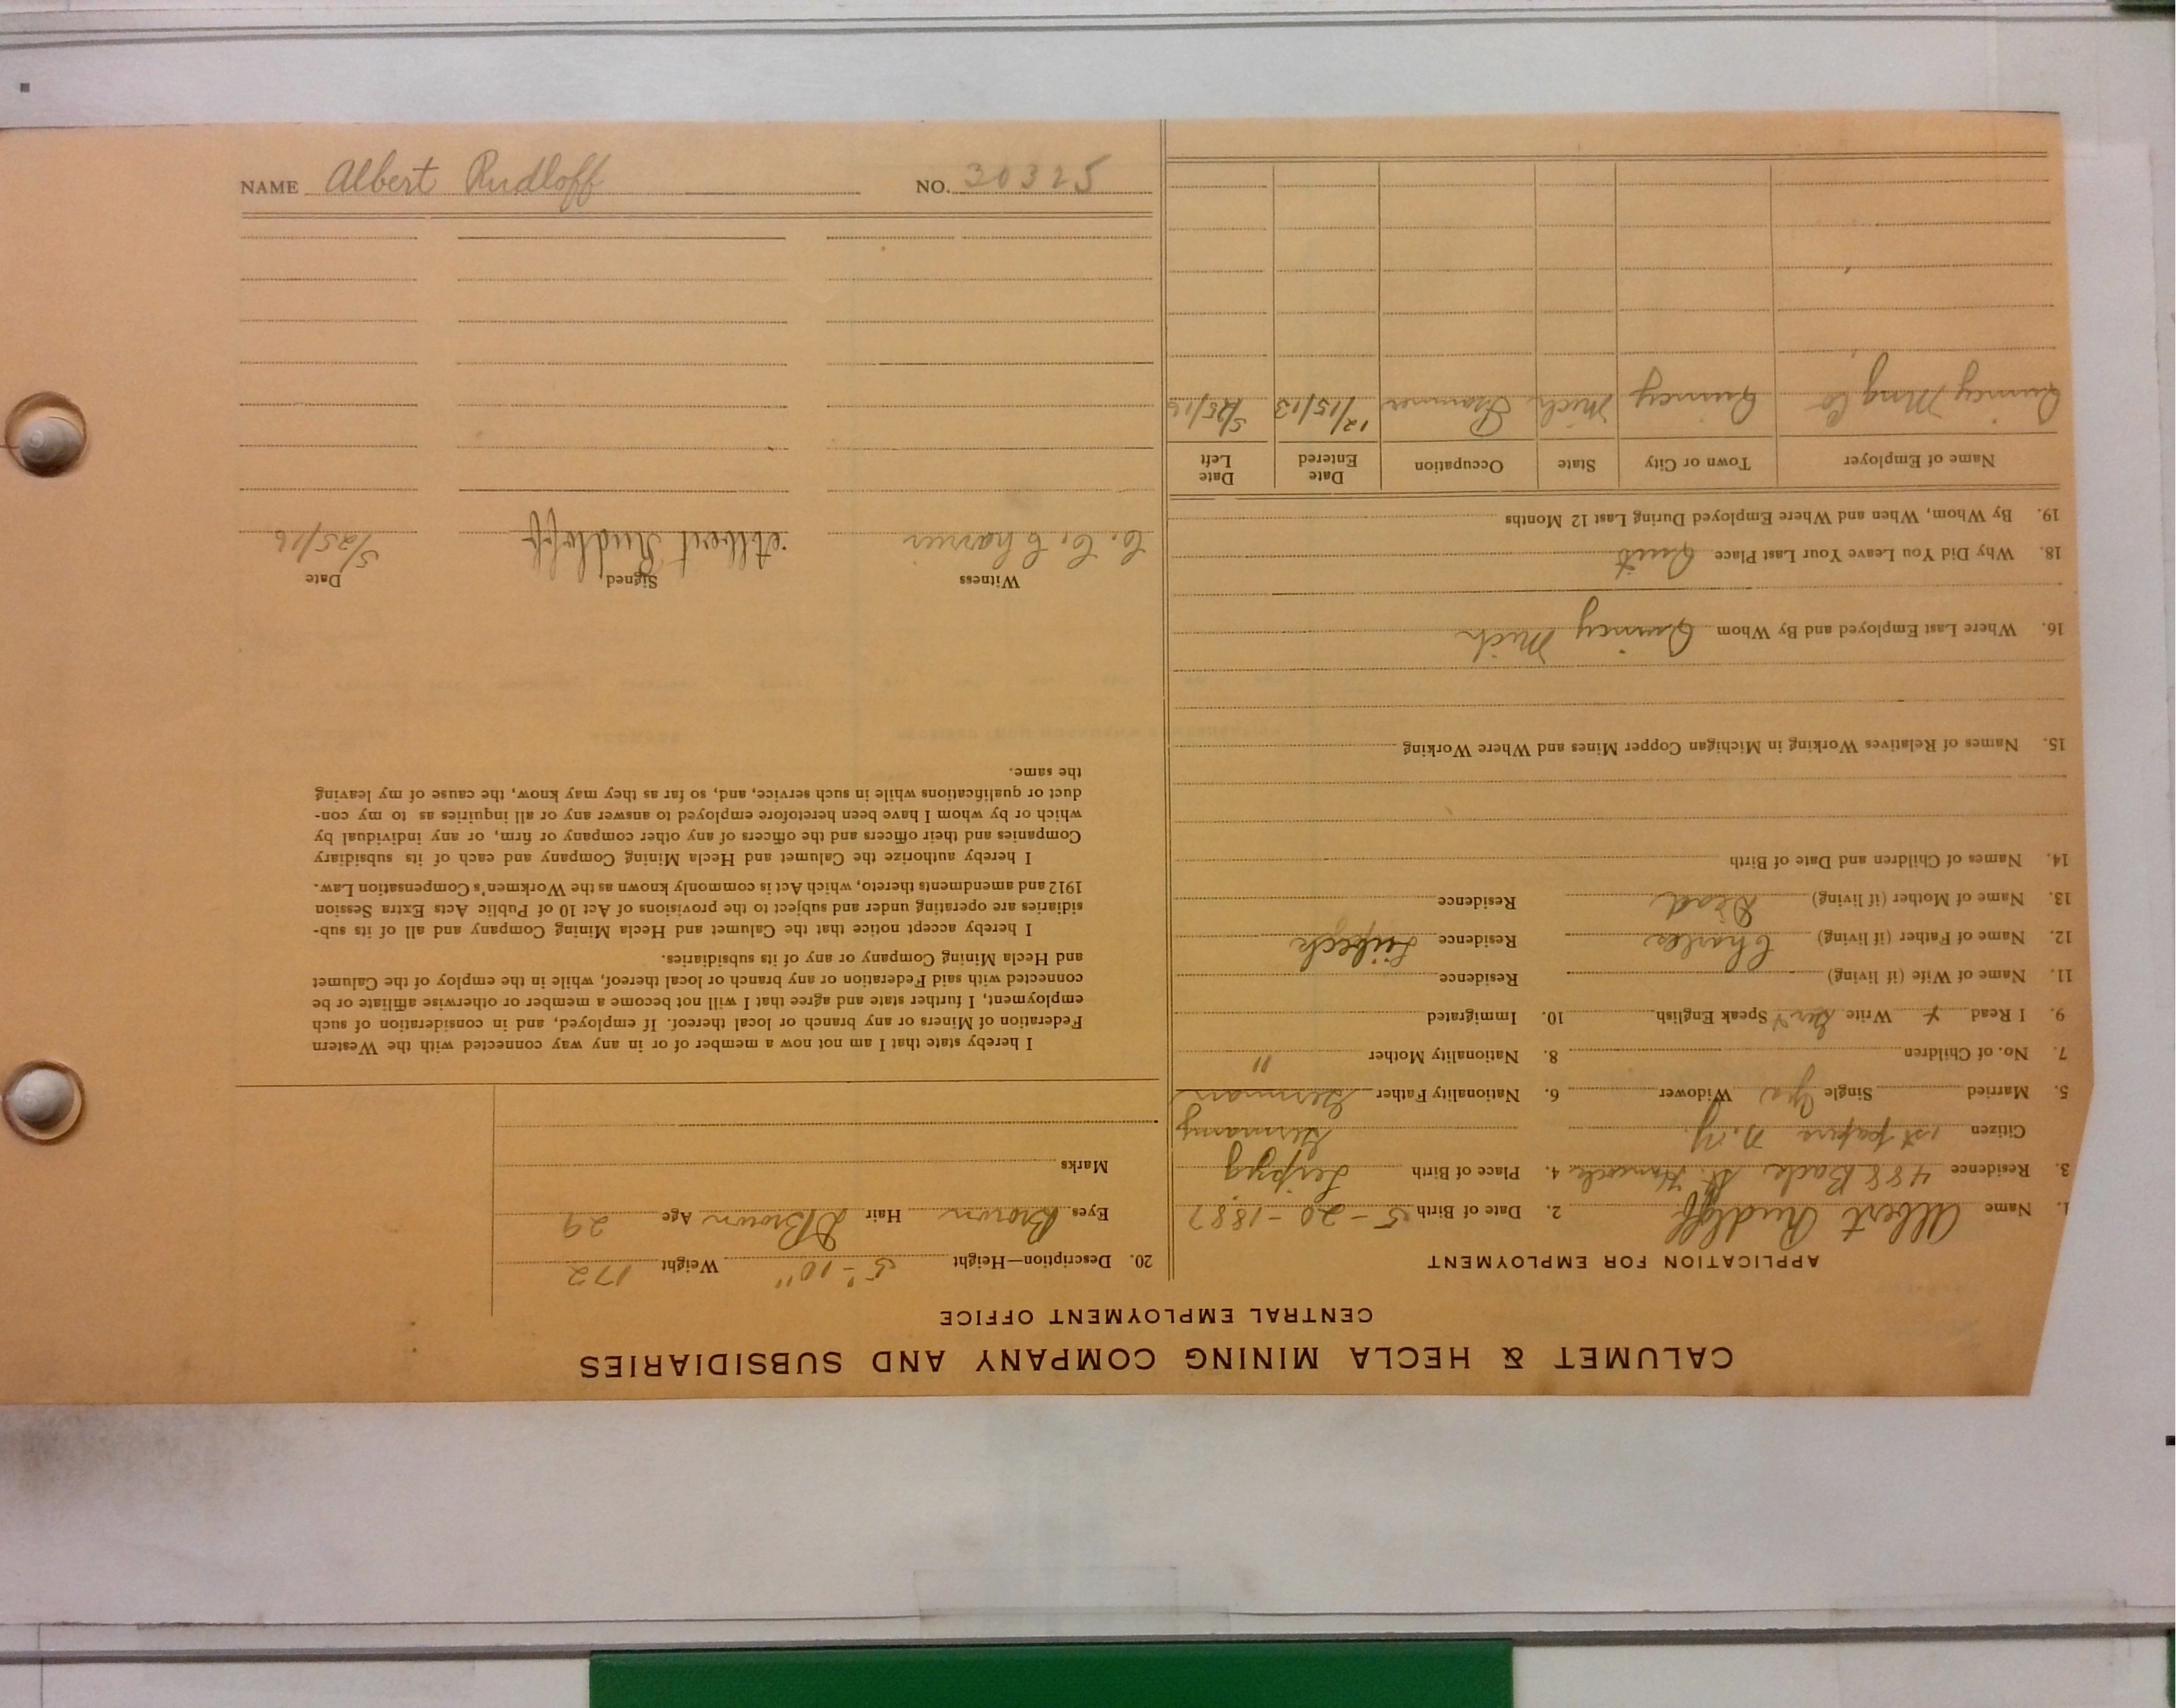 NAME Albert Rudloff NO. 30325
CALUMET & HECLA MINING COMPANY AND SUBSIDIARIES
CENTRAL EMPLOYMENT OFFICE
APPLICATION FOR EMPLOYMENT
1. Name Albert Rudloff 2. Date of Birth 5-20-1887
3. Residence 488 Back St. Hancock 4. Place of Birth Leipzig
Citizen 1st papers N.Y. Germany
5. Married Single Yes Widower 6. Nationality Father German
7. No. of Children 8. Nationality Mother "
9. I Read Write Speak English 10. Immigrated
11. Name of Wife (if living) Residence
12. Name of Father (if living) Charles Residence
13. Name of Mother (if living) Dead Residence
14. Names of Children and Date of Birth
15. Names of Relatives Working in Michigan Copper Mines and Where Working
16. Where Last Employed and By Whom Quincy Mich
18. Why Did You Leave Your Last Place Quit
19. By Whom, When and Where Employed During Last 12 Months
Name of Employer Town or City State Occupation Date Entered Date Left
Quincy Mng Co Quincy Mich Trammer 12/15/13 5/25/16
20. Description—Height 5'-10" Weight 172
Eyes Brown Hair D Brown Age 29
Marks
I hereby state that I am not now a member of or in any way connected with the Western
Federation of Miners or any branch or local thereof. If employed, and in consideration of such
employment, I further state and agree that I will not become a member or otherwise affiliate or be
connected with said Federation or any branch or local thereof, while in the employ of the Calumet
and Hecla Mining Company or any of its subsidiaries.
I hereby accept notice that the Calumet and Hecla Mining Company and all of its sub-
sidiaries are operating under and subject to the provisions of Act 10 of Public Acts Extra Session
1912 and amendments thereto, which Act is commonly known as the Workmen's Compensation Law.
I hereby authorize the Calumet and Hecla Mining Company and each of its subsidiary
Companies and their officers and the officers of any other company or firm, or any individual by
which or by whom I have been heretofore employed to answer any or all inquiries as to my con-
duct or qualifications while in such service, and, so far as they may know, the cause of my leaving
the same.
Witness Signed Date
Albert Rudloff 5/25/16